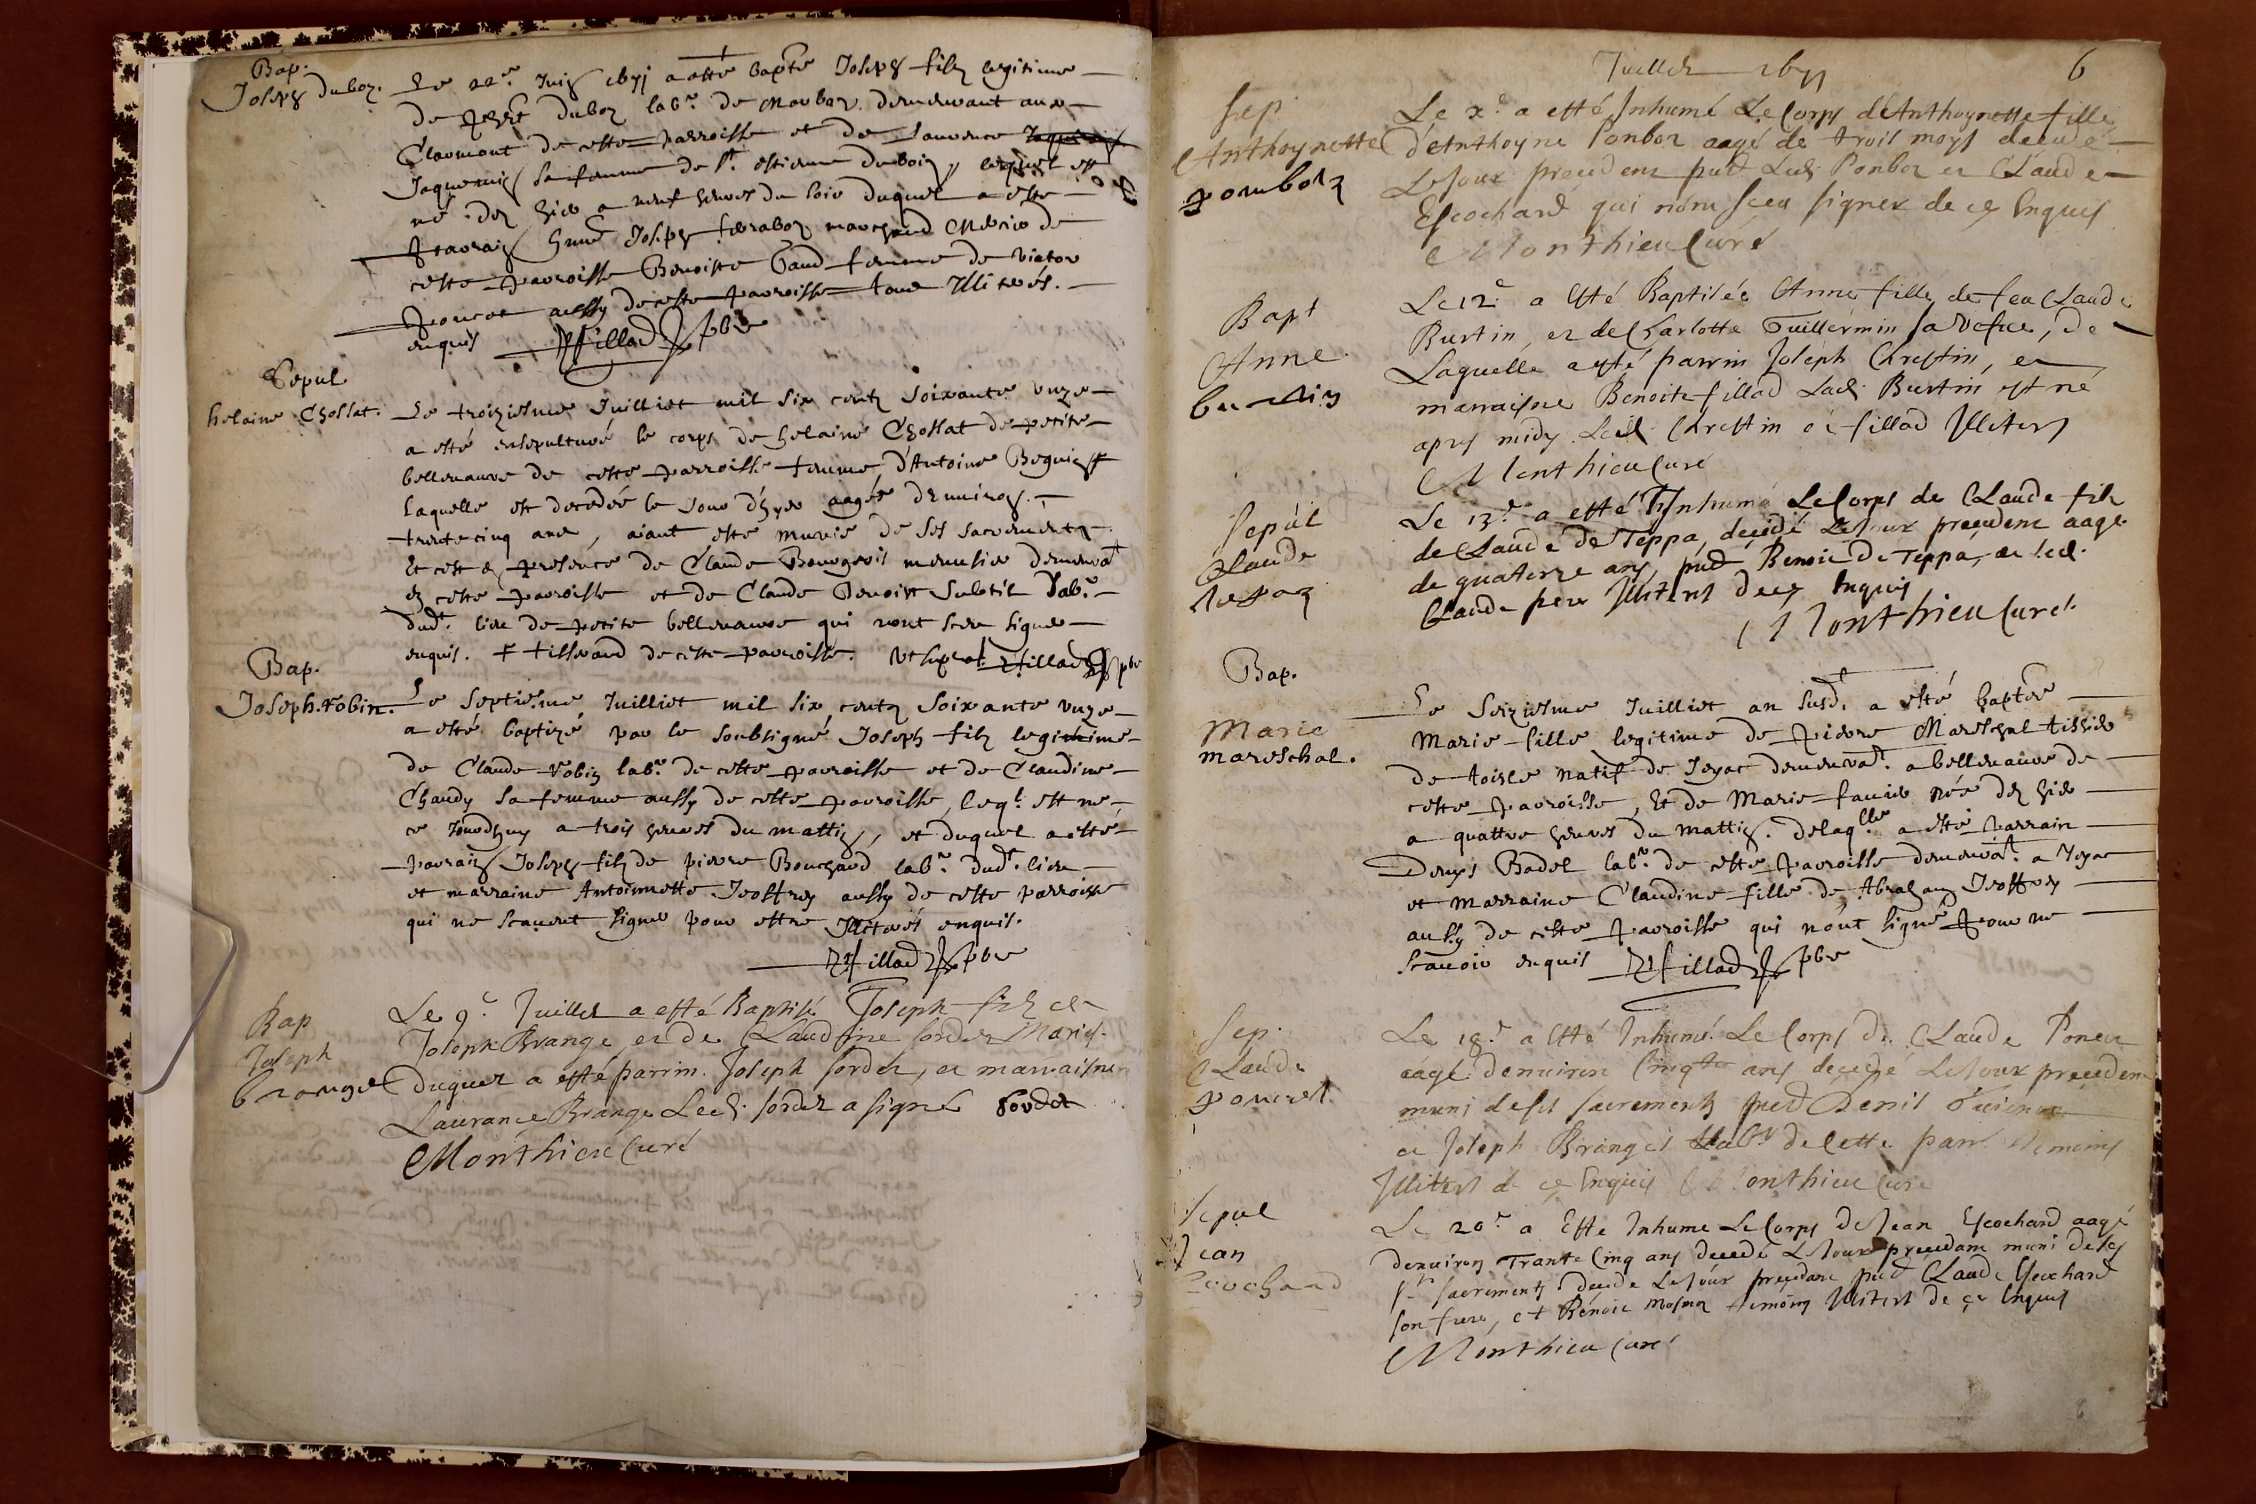 Bap.
Joseph duboz.
Le 22e Juin 1671 a esté bapté Joseph filz legitime
de duboz labr. de demeurant aux
Clermont de cette parroisse et de Laurence
Jaquemin sa femme de St. estienne dubois, lequel est
né dez hier a neuf heures du soir duquel a esté
parrain Joseph ferraboz marchand de
cette parroisse Benoiste femme de victor
poncet aussy de cette parroisse tous Illiterés.
enquis Ffillad pbre
Sepul
helaine Chossat.
Le troiziesme Juilliet mil six centz soixante unze
a esté ensepulturé le corps de helaine Chossat de petite
bellevavre de cette parroisse femme d'Antoine Beguin
laquelle est decedée le jour d'hyer aagée d'environ
trente cinq ans, aiant esté munie de ses sacrements
Et cest en presence de Claude Bourgeois menusier demeurat
en cette parroisse et de Claude Benoist Subtil labr.
dudt. lieu de petite bellevavre qui nont sceu signer
enquis. + tisserand de cette parroisse. Ut supra Ffillad pbr
Bap.
Joseph robin.
Le septiesme Juilliet mil six centz soixante unze
a esté baptizé par le soubsigné Joseph filz legitime
de Claude robin labr. de cette parroisse et de Claudine
Chaudy sa femme aussy de cette parroisse, leql. est né
ce jourdhuy a trois heures du mattin, et duquel a esté
parrain Joseph filz de pierre Bouchard labr. dudt. lieu
et marraine Antoinette Jeoffrey aussy de cette parroisse
qui ne scavent signer pour estre Illiterés enquis.
Ffillad pbre
Bap
Joseph
brange
Le 9e Juillet a esté Baptisé Joseph filz de
Joseph Brange et de Claudine sordet Mariés.
duquel a esté parrin Joseph sordet, et marraisne
Laurance Brange Led. sordet a signé Sordet
Monthieu Curé
Juillet 1671
6
Sep.
Anthoynette
ponboz
Le Xe a esté Inhumé Le Corps d'Anthoynette fille
d'Anthoyne Ponboz aagé de trois moys decedé
Le Jour precedent put Led. Ponboz et Claude
Escochard qui nont sceu signer de ce Enquis
Monthieu Curé
Bapt
Anne
burtin
Le 12e a Esté Baptisée Anne fille de feu Claude
Burtin, et de Charlotte Guillermin sa vefve, de
Laquelle a esté parrin Joseph Chrestin, et
marraisne Benoite fillad Lad. Burtin est né
apres midy. Led. Chrestin et fillad Illiters
Monthieu Curé
Sepul
Claude
tepaz
Le 13e a esté Inhumé Le Corps de Claude filz
de Claude de Teppa, decedé Le Jour precedent aagé
de quatorze ans, put Benoit De Teppa, et led.
Claude pere Illiters de ce Enquis
Monthieu Curé
Bap.
Marie
mareschal.
Le Seiziesme Juilliet an susdt. a esté baptée
Marie fille legitime de pierre Mareschal tissier
de toisle natif de Jeyac demeurat. a bellevavre de
cette parroisse, Et de Marie favier née dez hier
a quattre heures du mattin. delaqlle a esté parrain
Denys Badel labr. de cette parroisse demeurat. a Jeyac
et marraine Claudine fille de Abraham Jeoffrey
aussy de cette parroisse qui n'ont signé pour ne
scavoir enquis Ffillad pbre
Sep.
Claude
poncet.
Le 18e a Esté Inhumé Le Corps de Claude Poncet
aagé denviron Cinqte ans decedé Le Jour precedent
muni de ses sacrements put Denis
et Joseph Branget Labr de Cette parr. temoins
Illiters de ce Enquis Monthieu Curé
Sepul
Jean
Escochard
Le 20e a Esté Inhumé Le Corps de Jean Escochard aagé
denviron Trante Cinq ans decedé Le Jour precedant muni de ses
sts sacrements decedé Le Jour precedant put Claude Escochard
son frere, et Benoit temoins Illiters de ce Enquis
Monthieu Curé